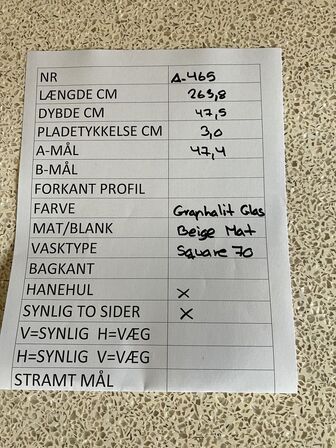 NR A-465
LÆNGDE CM 263,8
DYBDE CM 47,5
PLADETYKKELSE CM 3,0
A-MÅL 47,4
B-MÅL
FORKANT PROFIL
FARVE Graphalit Glas
MAT/BLANK Beige Mat
VASKTYPE Square 70
BAGKANT
HANEHUL X
SYNLIG TO SIDER X
V=SYNLIG H=VÆG
H=SYNLIG V=VÆG
STRAMT MÅL